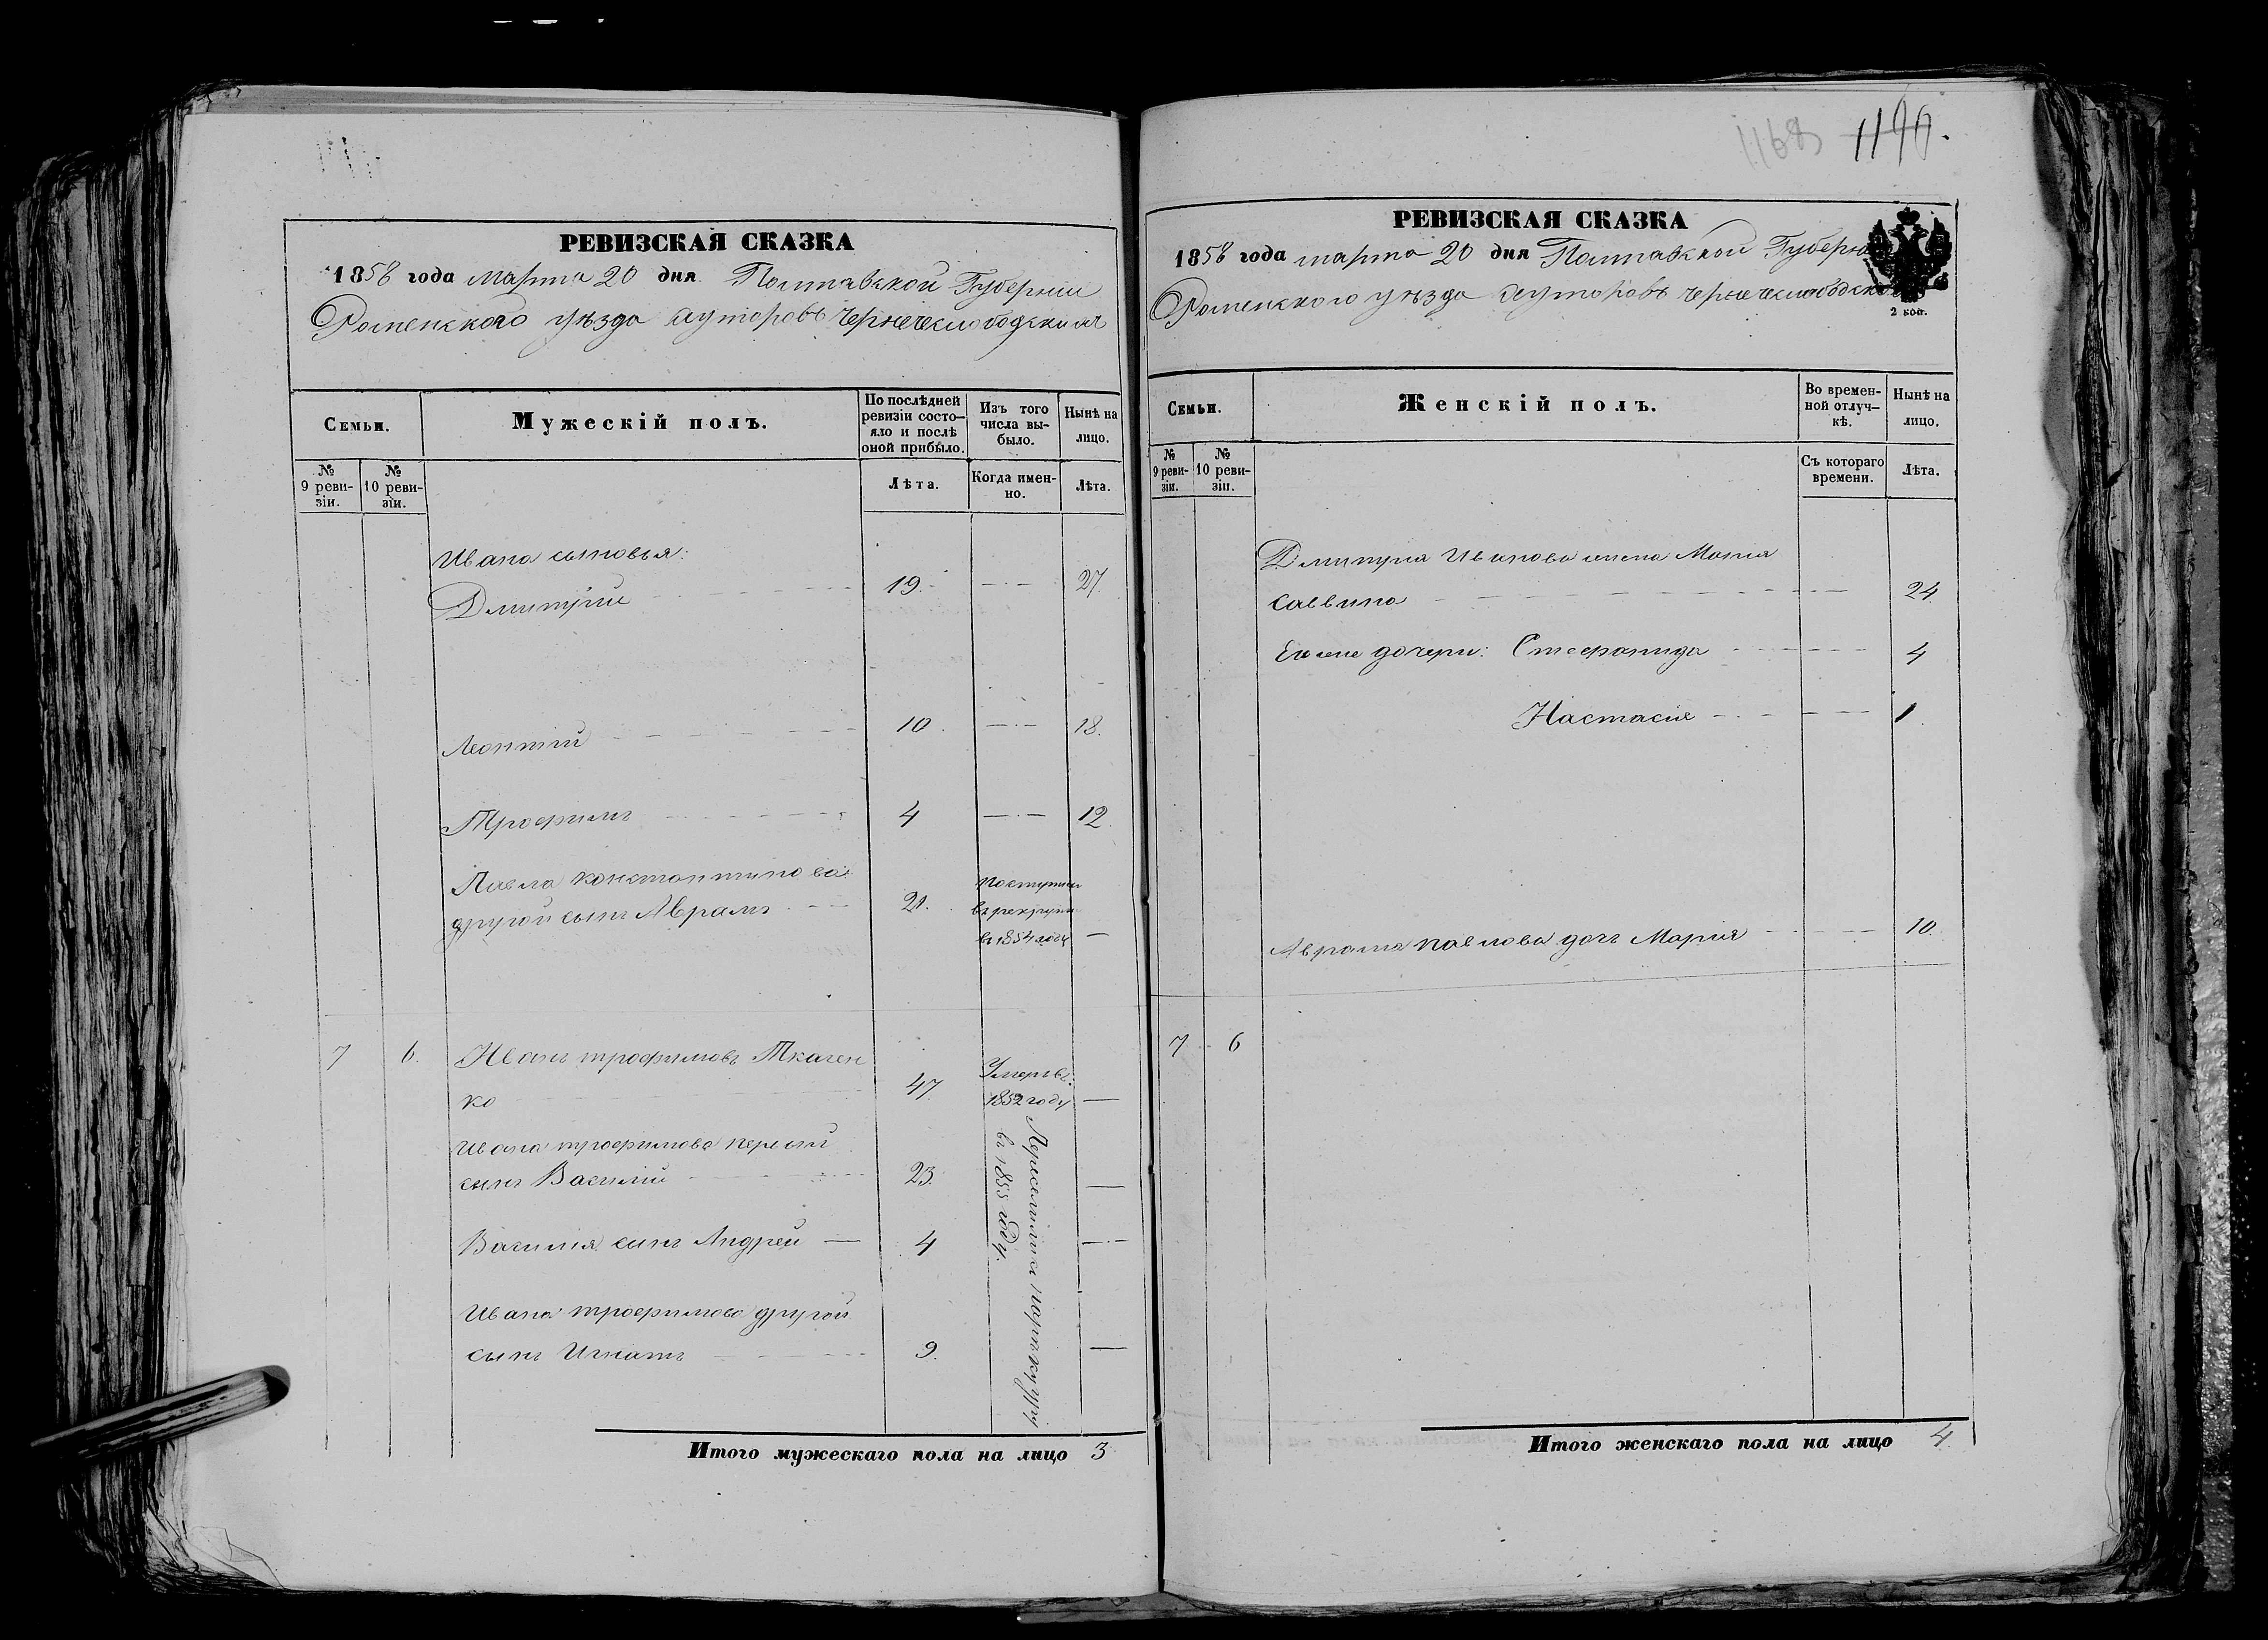 1168 1190.
РЕВИЗСКАЯ СКАЗКА
1858 года марта 20 дня Полтавской Губернии
Роменского уѣзда хуторовъ Чернечеслободскихъ
Семьи.
Мужескій полъ.
По послѣдней ревизіи состо-
яло и послѣ
оной прибыло.
Изъ того
числа вы-
было.
Нынѣ на
лицо.
№
9 реви-
зіи.
№
10 реви-
зіи.
Лѣта.
Когда имен-
но.
Лѣта.
Ивана сыновья:
Дмитрій 19. 27.
Леонтій 10. 18.
Трофимъ 4 12.
Павла Константинова
другой сынъ Аврамъ 21. Поступилъ
въ рекруты
въ 1854 году
7 6. Иванъ Трофимовъ Ткачен
ко 47. Умеръ въ
1852 году
Ивана Трофимова первый
сынъ Василій 23.
Василія сынъ Андрей 4
Ивана Трофимова другой
сынъ Игнатъ 9.
въ 1855 году.
Итого мужескаго пола на лицо 3
РЕВИЗСКАЯ СКАЗКА
1858 года марта 20 дня Полтавской Губерніи
Роменского уѣзда хуторовъ Чернечеслободских
2 коп.
Семьи.
Женскій полъ.
Во времен-
ной отлуч-
кѣ.
Нынѣ на
лицо.
№
9 реви-
зіи.
№
10 реви-
зіи.
Съ котораго
времени.
Лѣта.
Дмитрія Иванова жена Марія
Саввина 24.
Ихъ же дочери: Стефанида 4
Настасія 1.
Аврама Павлова дочь Марія 10.
7 6
Итого женскаго пола на лицо 4.